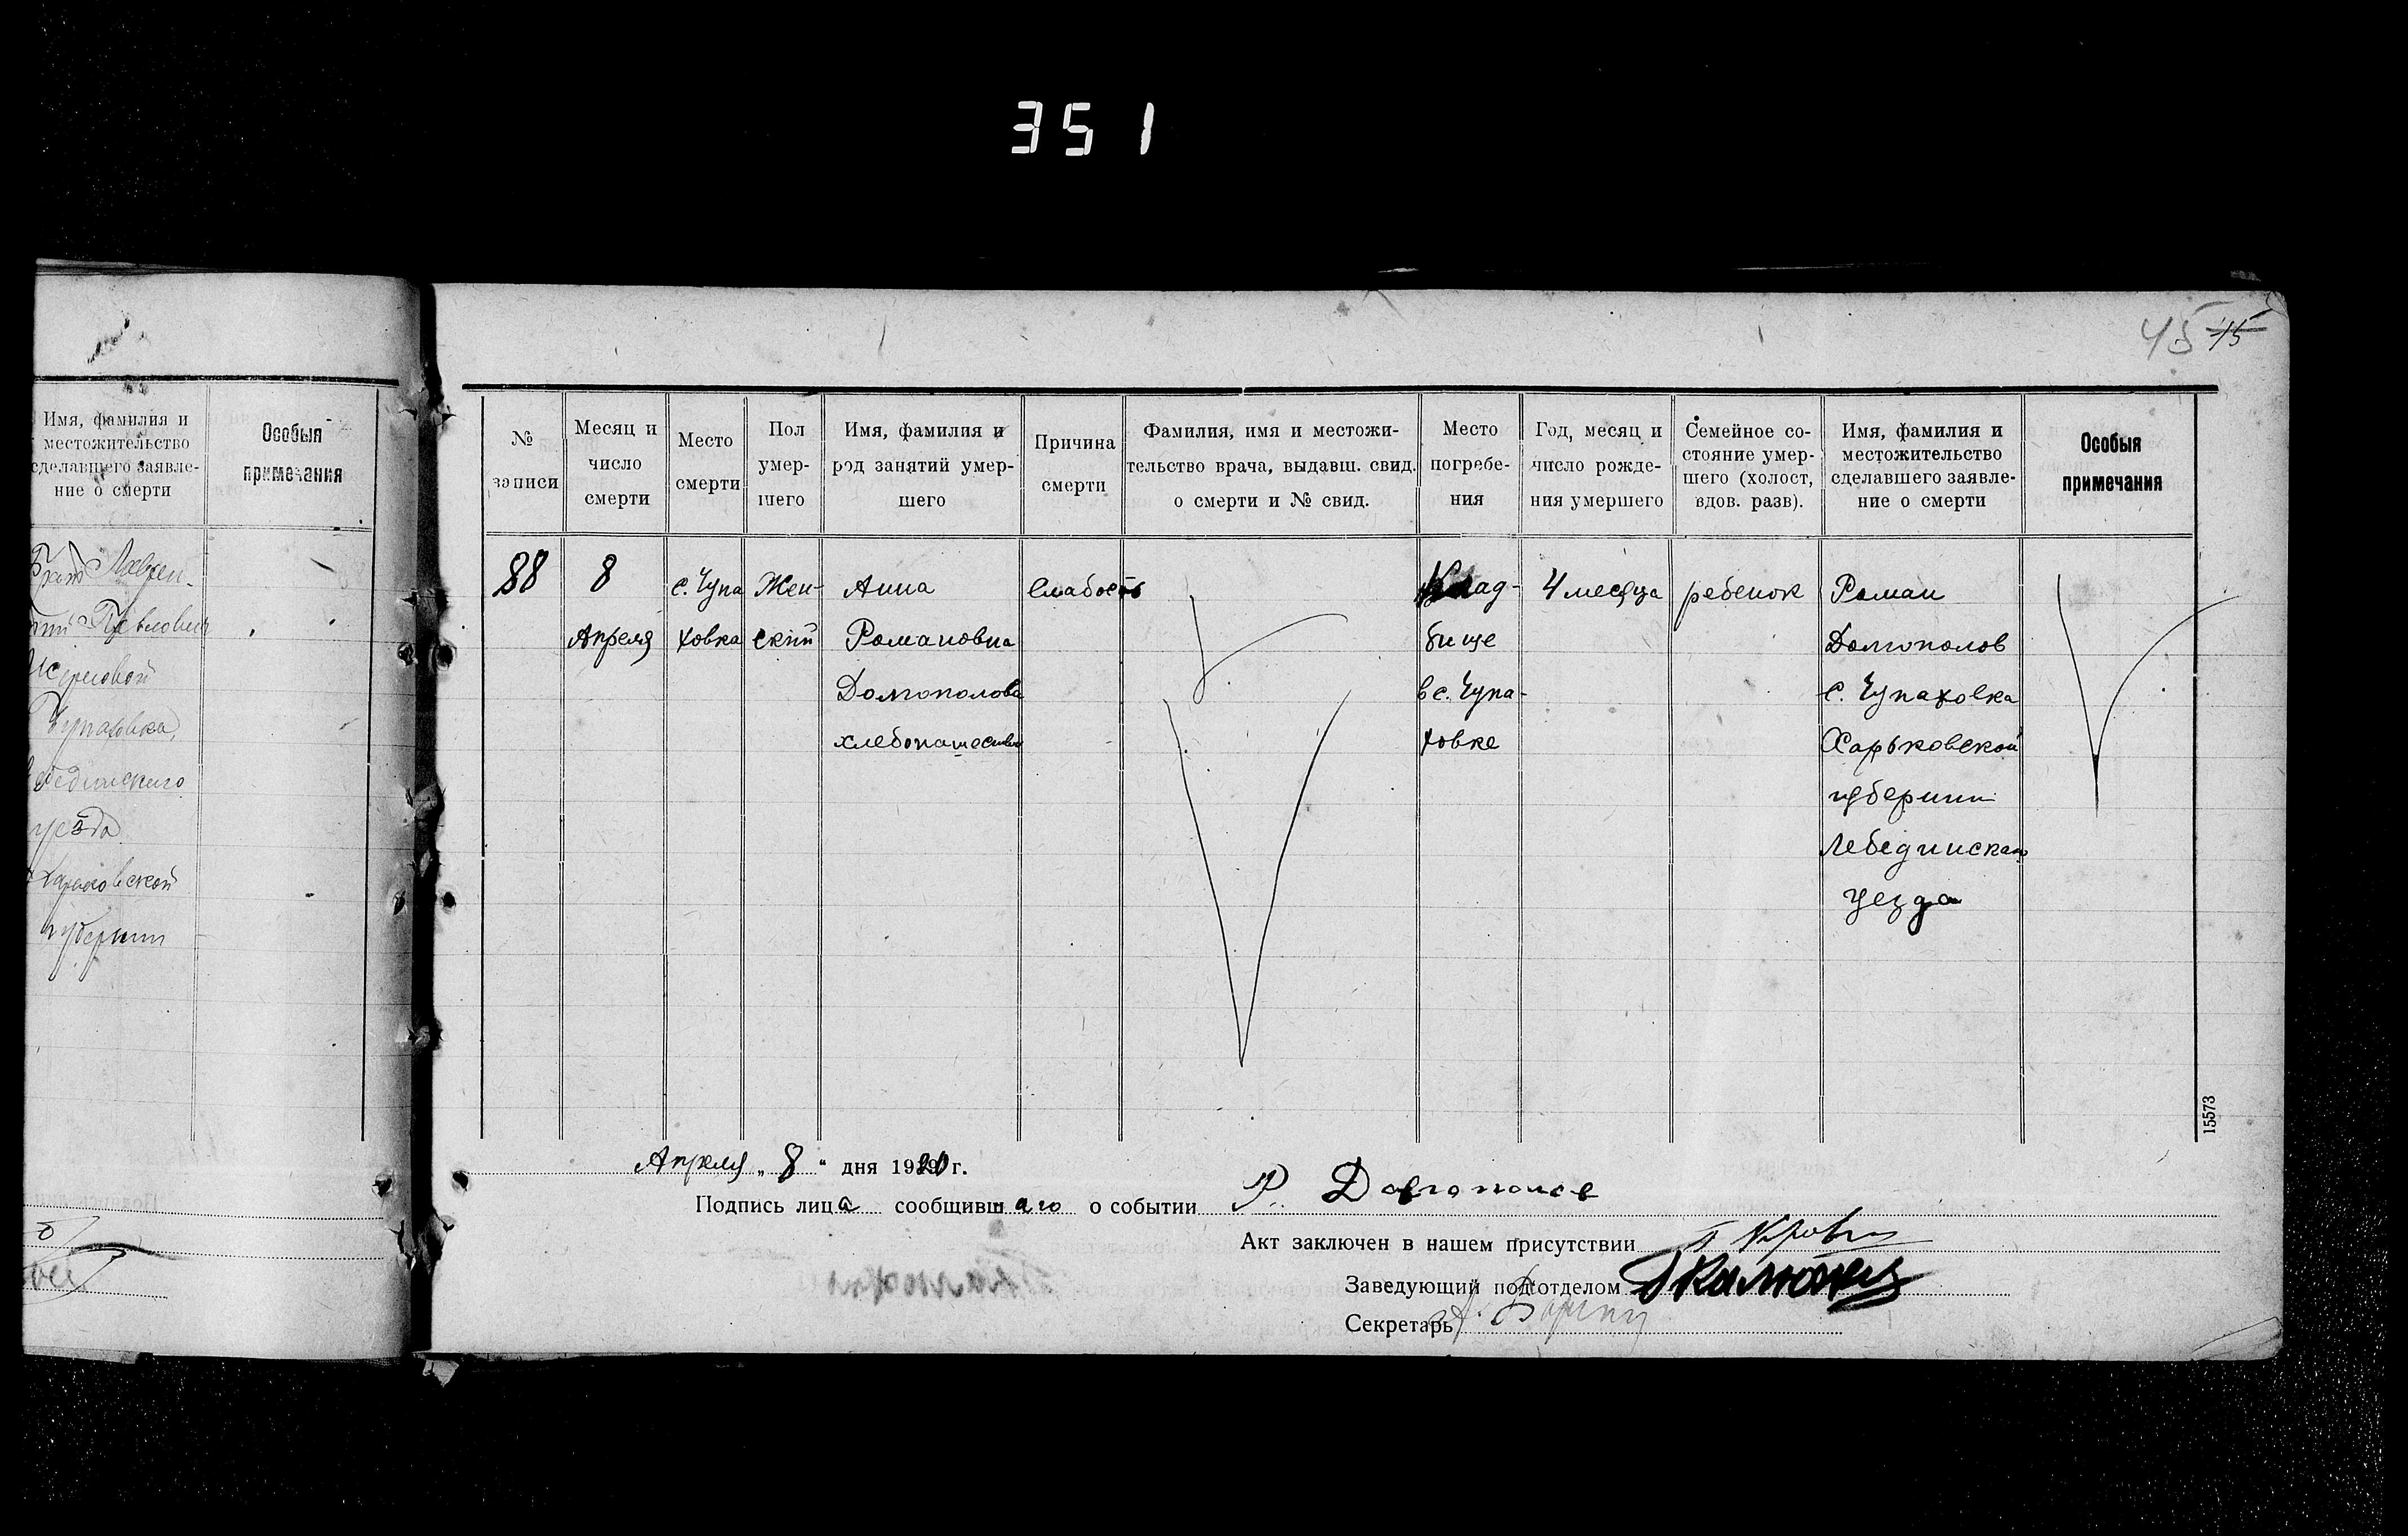 351
45 45
Имя, фамилия и
местожительство
сделавшего заявле-
ние о смерти
Особыя
примечания
Брат Лаврен-
тий Павлович
Чупаховка,
Лебединскиго
уезда
Харьковской
губернии
№
записи
Месяц и
число
смерти
Место
смерти
Пол
умер-
шего
Имя, фамилия и
род занятий умер-
шего
Причина
смерти
Фамилия, имя и местожи-
тельство врача, выдавш. свид.
о смерти и № свид.
Место
погребе-
ния
Год, месяц и
число рожде-
ния умершего
Семейное со-
стояние умер-
шего (холост,
вдов. разв).
Имя, фамилия и
местожительство
сделавшего заявле-
ние о смерти
Особыя
примечания
88
8
Апреля
с. Чупа
ховка
Жен-
ский
Анна
Романовна
Долгополова
хлебопашество
Слабость
Клад-
бище
в с. Чупа-
ховке
4 месяца
ребенок
Роман
Долгополов
с. Чупаховка
Харьковской
губернии
Лебединскаго
уезда
15573
Апреля „ 8 “ дня 1920 г.
Подпись лица сообщившаго о событии Р. Довгополов
Акт заключен в нашем присутствии
Заведующий подотделом
Секретарь